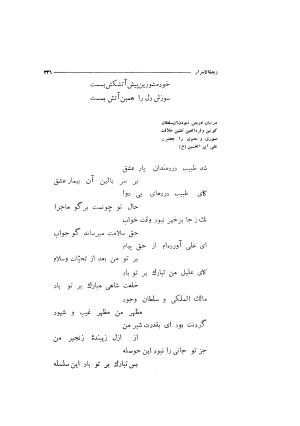 زبدة‌الاسرار ۳۳۹
خود مشو زین پیش آتشکش بست
سوزش دل را همین آتش بست
در بیان تفویض نمودن آن سلطان
کونین و فردالعین آنقین خلافت
صوری و معنوی را بحضرت
علی ابن الحسین (ع)
شد طبیب دردمندان یار عشق
بر سر بالین آن بیمار عشق
کای طبیب دردهای بی دوا
حال تو چونست برگو ماجرا
نک ز جا برخیز نبود وقت خواب
حق سلامت میرساند گو جواب
ای علی آورده‌ام از حق پیام
بر تو من بعد از تحیات وسلام
کای علیل من تبارک بر تو باد
خلعت شاهی مبارک بر تو باد
مالک الملکی و سلطان وجود
مظهر من مظهر غیب و شهود
گردنت بود ای بقدرت شیر من
از ازل زیبندهٔ زنجیر من
جز تو جانی را نبود این حوصله
پس تبارک بر تو باد این سلسله